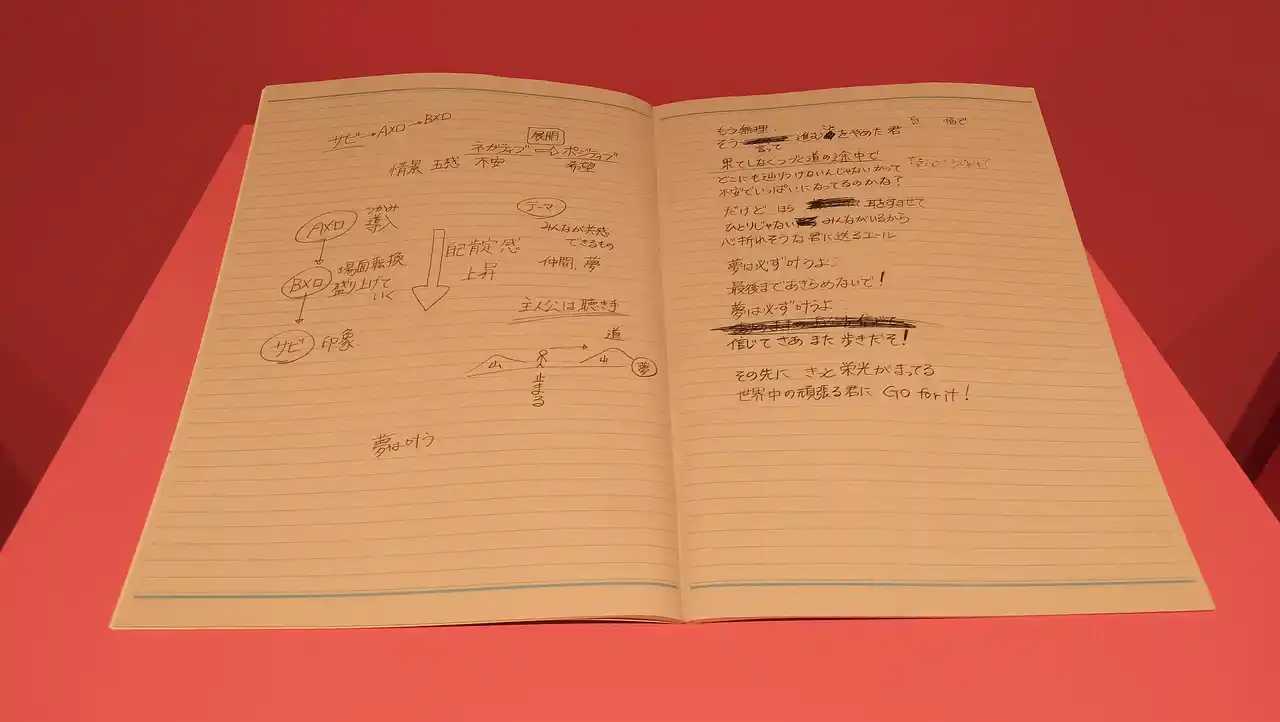 サビ→Aメロ→Bメロ
展開
ネガティブ⇨ポジティブ
情景 五感 不安 希望
Aメロ つかみ 導入
Bメロ 場面転換 盛り上げていく
サビ 印象
自己肯定感
上昇
テーマ
みんなが共感
できるもの
仲間、夢
主人公は聴き手
道
山 山 夢
止まる
夢は叶う
もう無理.
そう 言って 進む歩をやめた君
果てしなくつづく道の途中で
どこにも辿りつけないんじゃないかって
不安でいっぱいになってるのかな?
だけど ほら 耳をすませて
ひとりじゃない みんながいるから
心折れそうな君に送るエール
夢は必ず叶うよ.
最後まであきらめないで!
夢は必ず叶うよ
信じて さあ また 歩きだそ!
その先に きっと 栄光がまってる
世界中の頑張る君に Go for it!